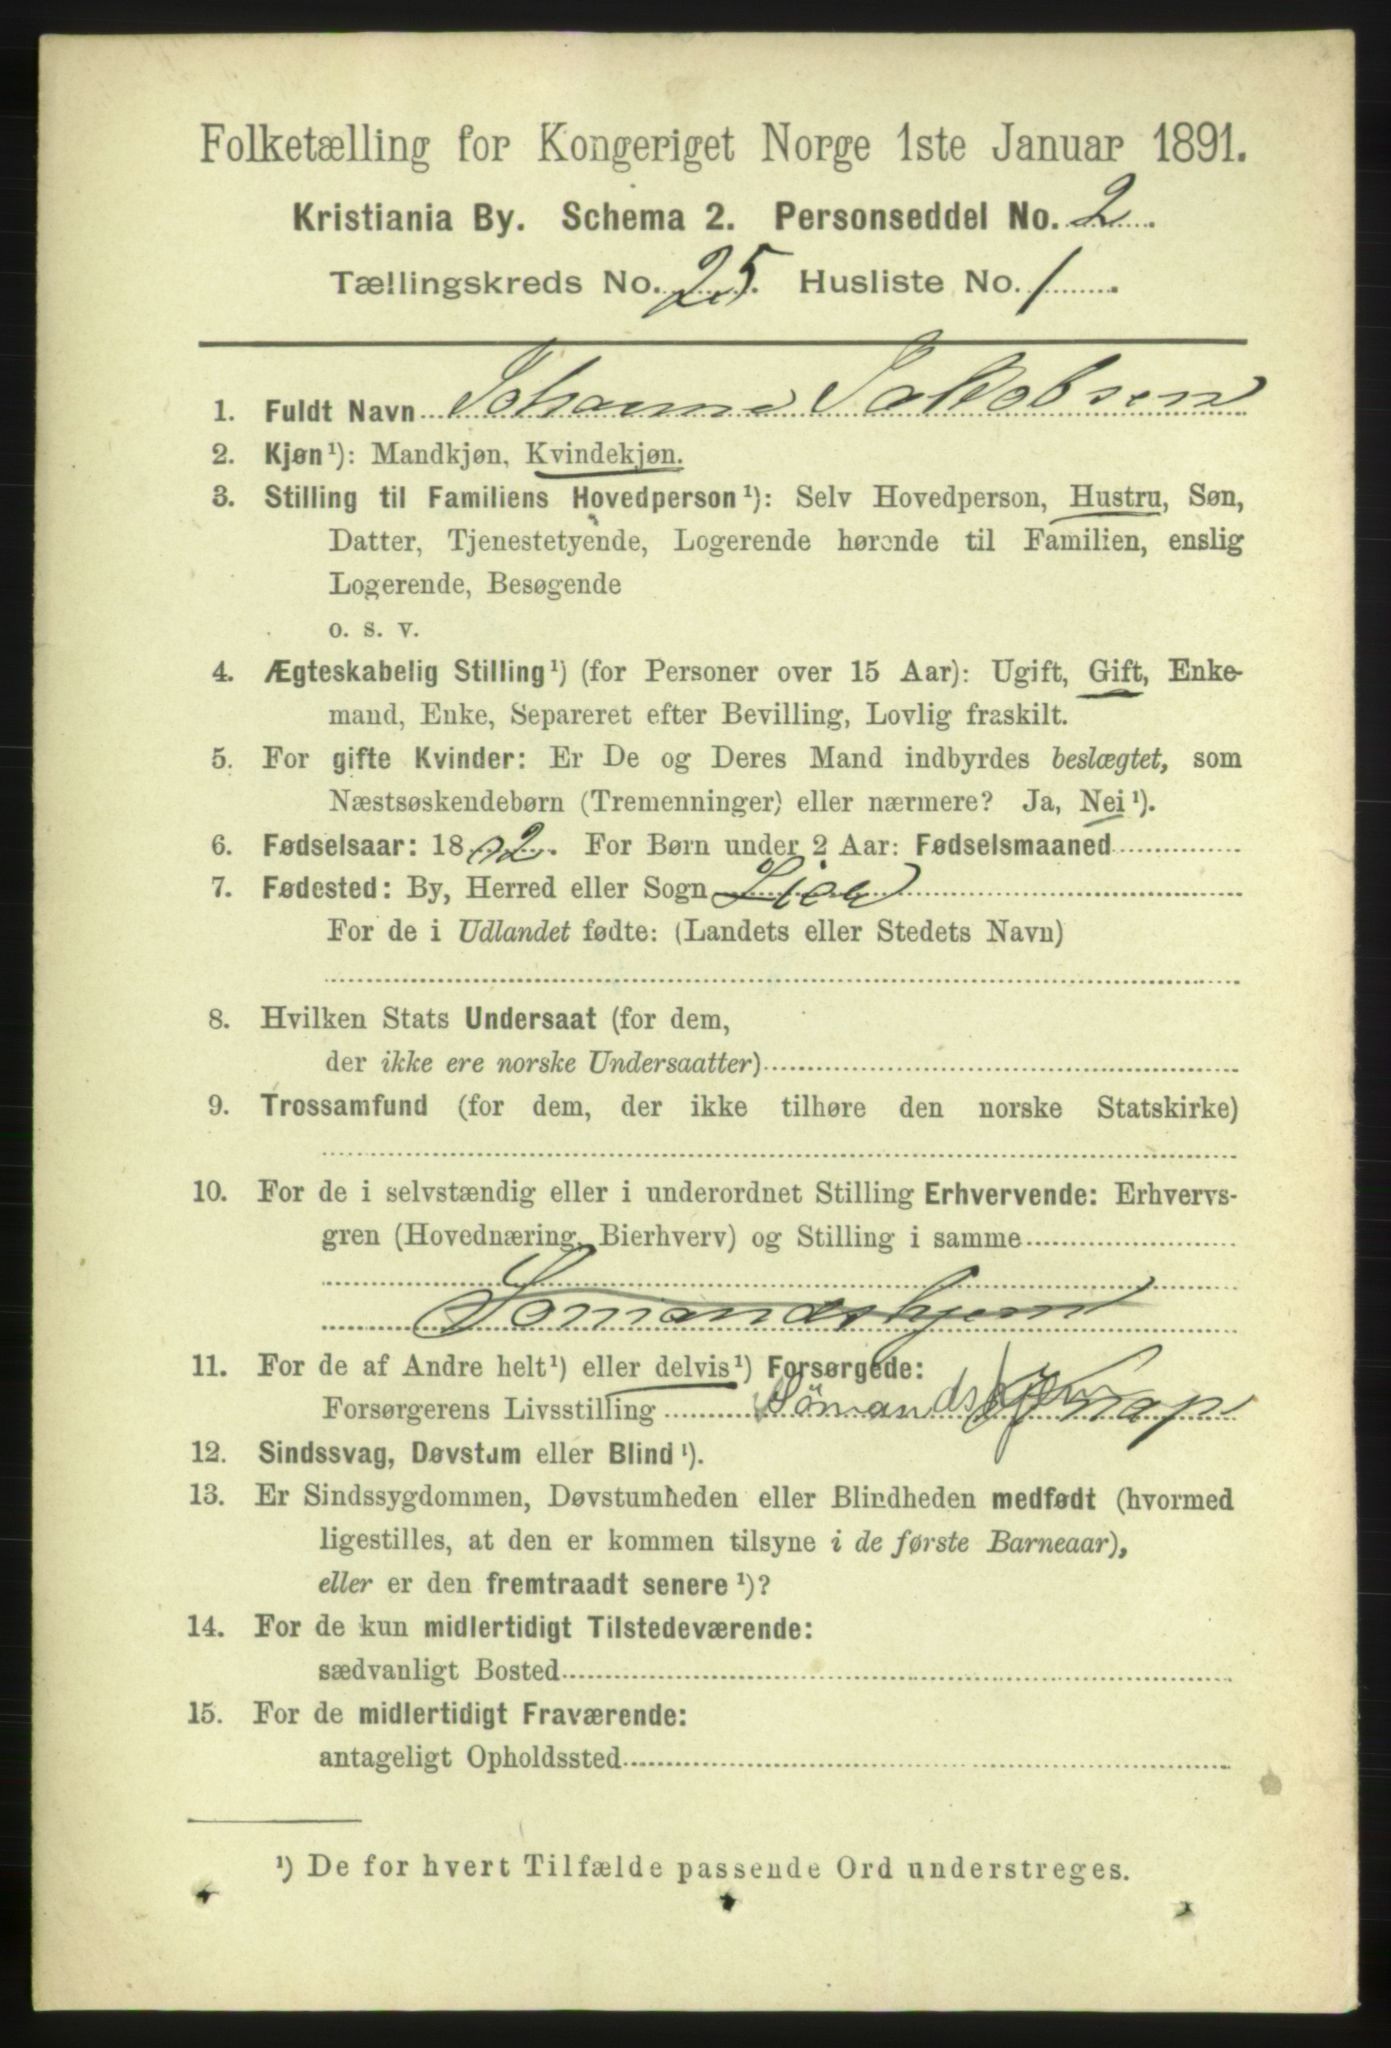 Folketælling for Kongeriget Norge 1ste Januar 1891.
Kristiania By. Schema 2. Personseddel No. 2
Tællingskreds No. 25. Husliste No. 1
1. Fuldt Navn Johanne Jakobsen
2. Kjøn¹): Mandkjøn, Kvindekjøn.
3. Stilling til Familiens Hovedperson¹): Selv Hovedperson, Hustru, Søn,
Datter, Tjenestetyende, Logerende hørende til Familien, enslig
Logerende, Besøgende
o. s. v.
4. Ægteskabelig Stilling¹) (for Personer over 15 Aar): Ugift, Gift, Enke-
mand, Enke, Separeret efter Bevilling, Lovlig fraskilt.
5. For gifte Kvinder: Er De og Deres Mand indbyrdes beslægtet, som
Næstsøskendebørn (Tremenninger) eller nærmere? Ja, Nei¹).
6. Fødselsaar: 18 . For Børn under 2 Aar: Fødselsmaaned
7. Fødested: By, Herred eller Sogn
For de i Udlandet fødte: (Landets eller Stedets Navn)
8. Hvilken Stats Undersaat (for dem,
der ikke ere norske Undersaatter)
9. Trossamfund (for dem, der ikke tilhøre den norske Statskirke)
10. For de i selvstændig eller i underordnet Stilling Erhvervende: Erhvervs-
gren (Hovednæring, Bierhverv) og Stilling i samme
Somandshjem
11. For de af Andre helt¹) eller delvis¹) Forsørgede:
Forsørgerens Livsstilling Sömands
12. Sindssvag, Døvstum eller Blind¹).
13. Er Sindssygdommen, Døvstumheden eller Blindheden medfødt (hvormed
ligestilles, at den er kommen tilsyne i de første Barneaar),
eller er den fremtraadt senere¹)?
14. For de kun midlertidigt Tilstedeværende:
sædvanligt Bosted
15. For de midlertidigt Fraværende:
antageligt Opholdssted
¹) De for hvert Tilfælde passende Ord understreges.